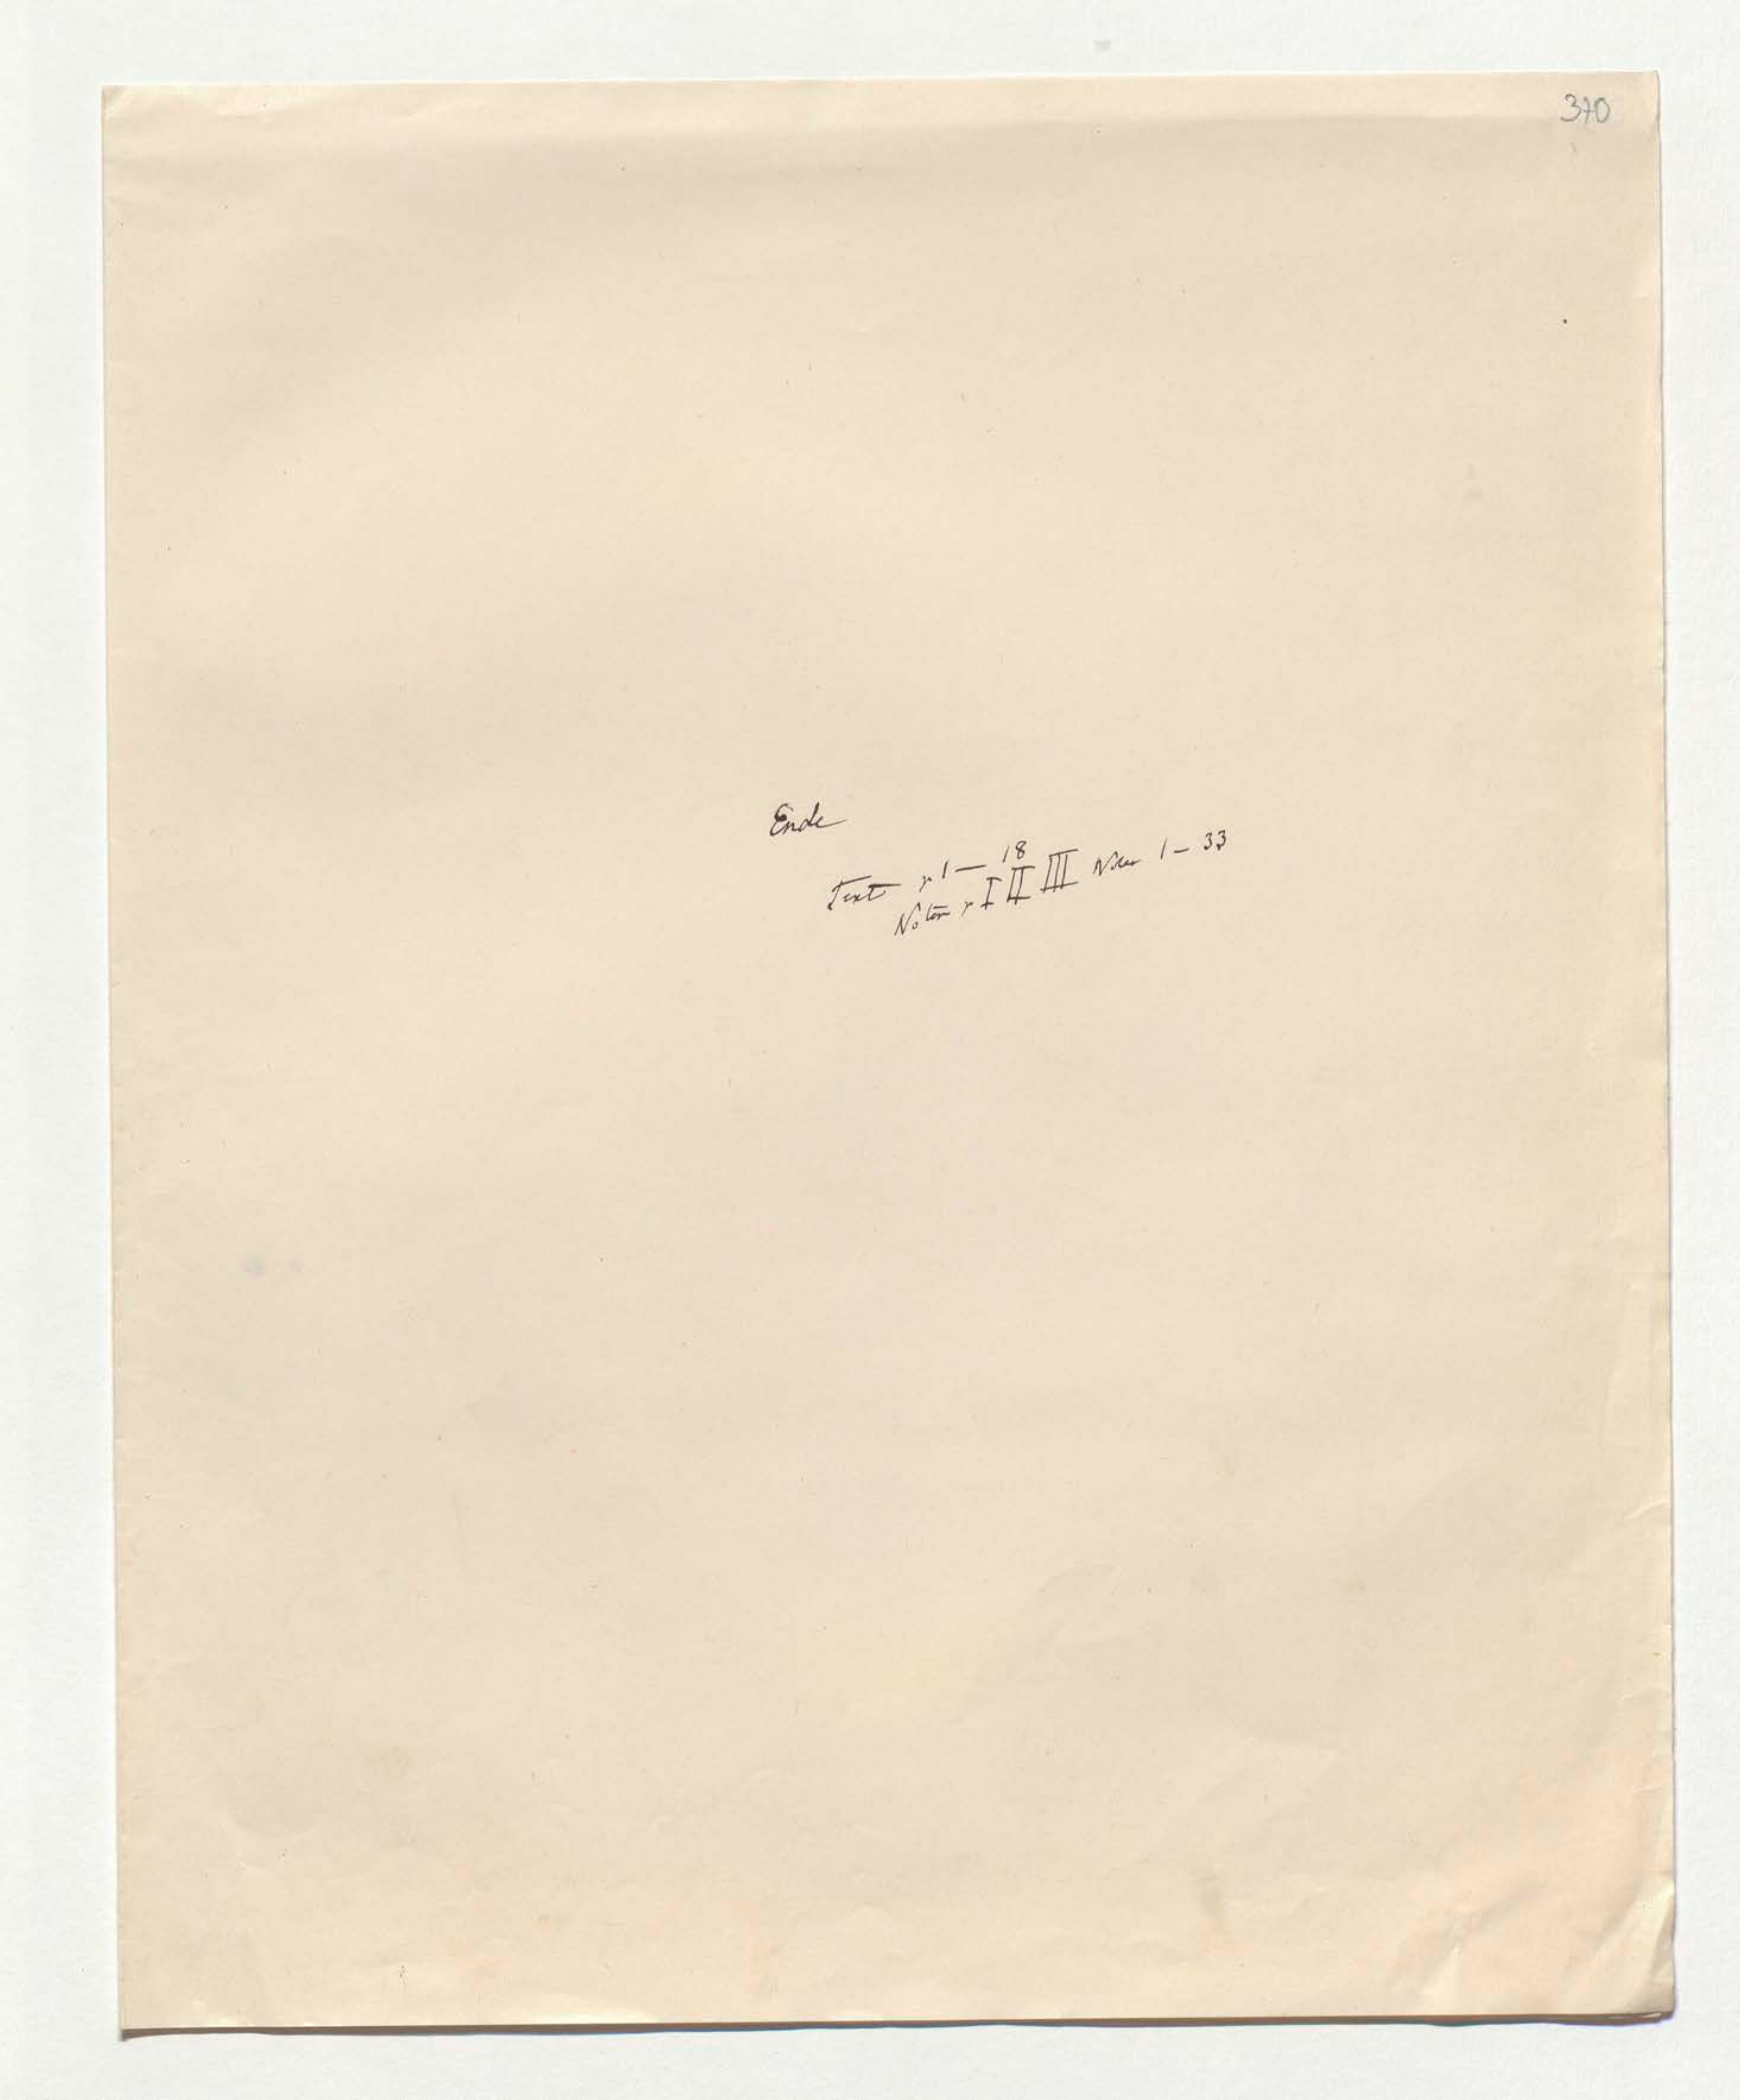 370
Ende
Text p 1 — 18
Noten p I II III Noten 1 — 33